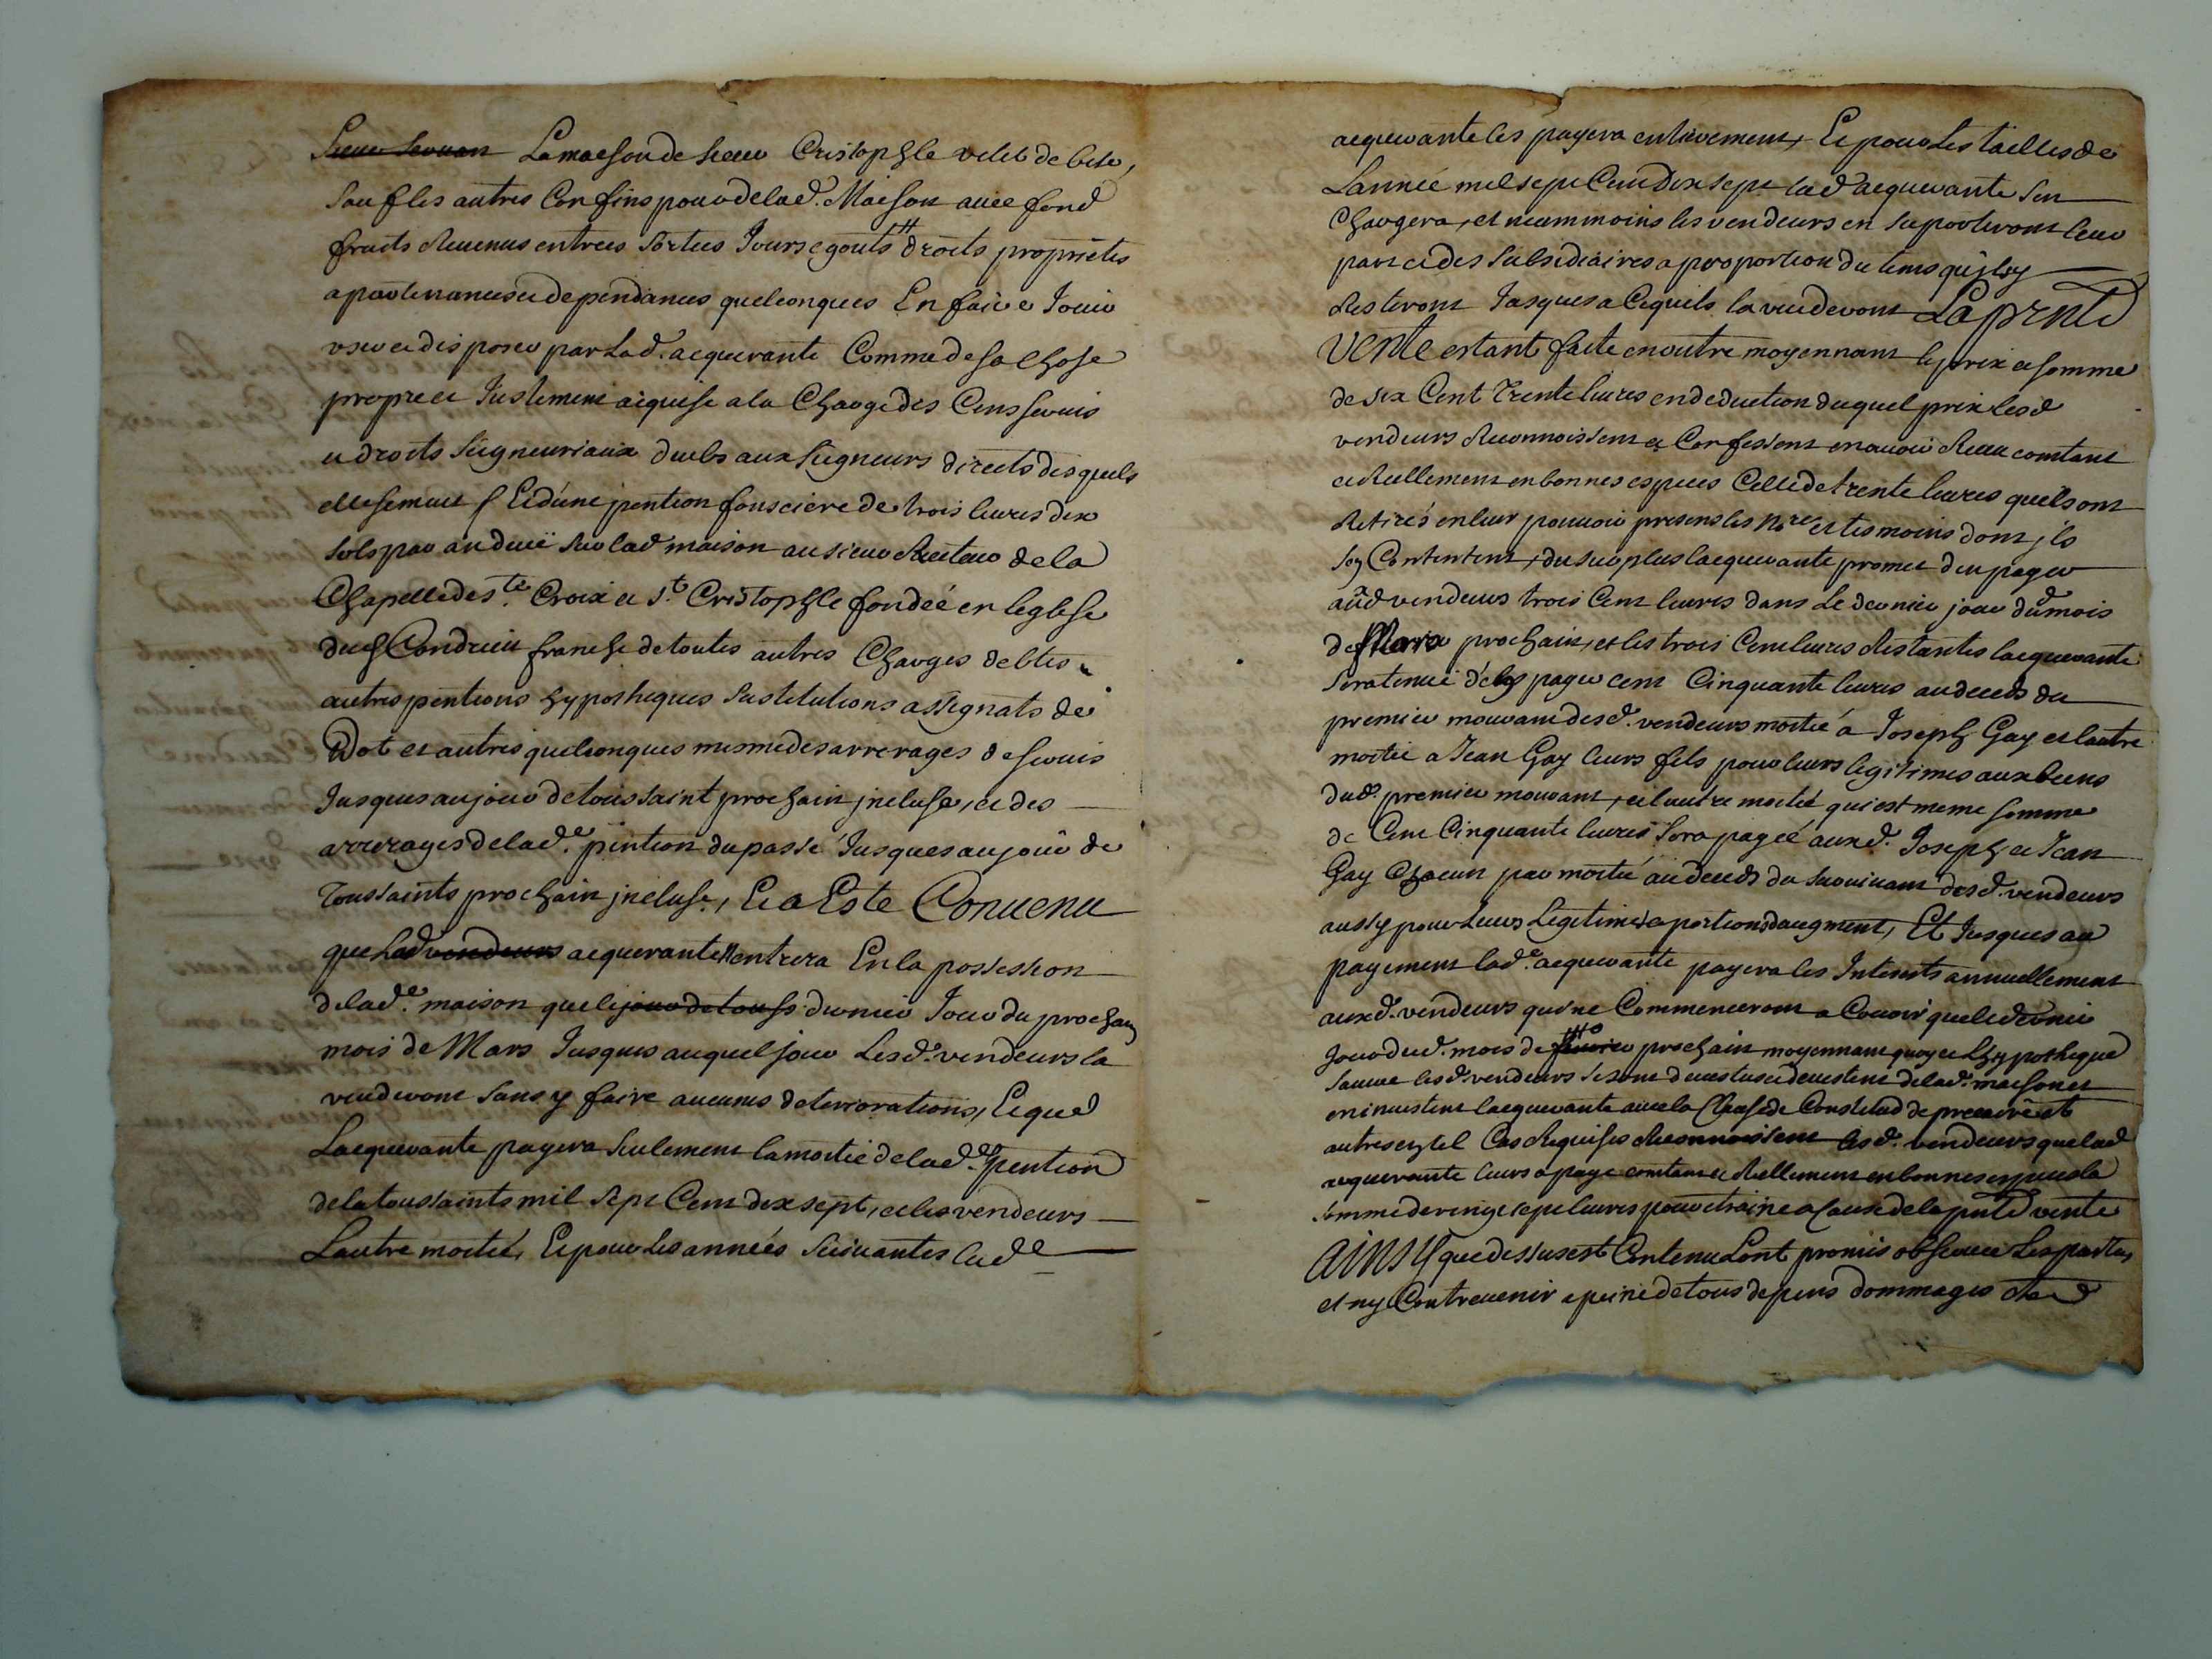 La maison de sieur Cristophle velet de bise,
Sauf les autres Confins pour de lad. Maison avec fond
fruits Revenus entrees Sorties Jours egouts droits proprietés
apartenances et dependances quelconques En faire Jouir
user et disposer par Lad. acquerante Comme de sa chose
propre et Justement acquise a la Charge des Cens servis
et droits Seigneuriaux deubs aux Seigneurs directs desquels
elle se meut Et d'une pention fonsciere de trois livres dix
sols par an deuë sur lad maison au sieur Recteur de la
Chapelle de Ste. Croix et St. Cristophle fondée en leglise
dud Condrieu franche de toutes autres Charges debtes
autres pentions hypotheques Sustitutions assignats de
Dot et autres quelconques mesme des arrerages de servis
Jusques au jour de toussaint prochain jncluse, et des
arrerages de lade. pention du passé Jusques au jour de
Toussaints prochain jncluse, Et a Esté Convenu
que Lad vendeurs acquerante nentrera En la possession
de lade. maison que le jour de touss dernier Jour du prochain
mois de Mars Jusques auquel jour Lesd. vendeurs la
vuideront sans y faire aucunes deteriorations, Et que
Lacquerante payera seulement la moitié de lade. pention
de la toussaints mil sept Cent dix sept, et les vendeurs
Lautre moitié, Et pour les années suivantes lade
acquerante les payera entierement, Et pour Les tailles de
Lannée mil sept Cent Dix sept lad acquerante sen
Chargera, et neammoins les vendeurs en suporteront leur
part et des subsidiaires a proportion du tems qu'ils y
Resteront Jusques a Ce quils la vuideront La prnte
Vente estant faite en outre moyennant le prix et somme
de six Cent Trente livres en deduction duquel prix lesd
vendeurs Reconnoissent et Confessent en avoir Receu comtant
et Reellement en bonnes especes Celle de trente livres quils ont
Retirés en leur pouvoir presens les nore et tesmoins dont jls
sen Contentent, du surplus lacquerante promet den payer
aud vendeurs trois Cent livres dans Le dernier jour du mois
de Mars prochain, et les trois Cent livres Restantes lacquerante
sera tenuë de les payer cent Cinquante livres au deceds du
premier mourant desd. vendeurs moitié a Joseph Gay et lautre
moitié a Jean Gay leurs fils pour leurs legitimes aux biens
dud. premier mourant, et lautre moitié qui est meme somme
de Cent Cinquante livres sera payéé auxd. Joseph et Jean
Gay Chacun par moitié au deceds du survivant desd. vendeurs
aussy pour Leurs Legitimes et portions daugment, Et Jusques au
payement lade. acquerante payera les Interests annuellement
auxd. vendeurs qui ne Commenceront a Courir que le dernier
Jour dud. mois de fevrier prochain moyennant quoy et Lhypotheque
sauve lesd. vendeurs se sont devestus et devestent de lad. maison et
en investent lacquerante avec la Clause de Constitud de precaire et
autres en tel Cas Requises Reconnoissent lesd. vendeurs que lad
acquerante leurs a payé comtant et Reellement en bonnes especes la
somme de vingt sept livres pour etraine a Cause de la pnte vente
Ainsy que dessus est Contenu Lont promis observer Les parties
et ny Contrevenir a peine de tous depens dommages